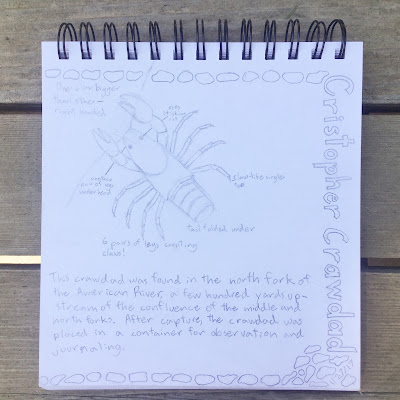 One arm bigger
than other –
right handed
eyes
sticking
out
tail folded under
6 pairs of legs counting
claws!
Cristopher Crawdad
This crawdad was found in the north fork of
the American River, a few hundred yards up-
stream of the confluence of the middle and
north forks. After capture, the crawdad was
placed in a container for observation and
journaling.